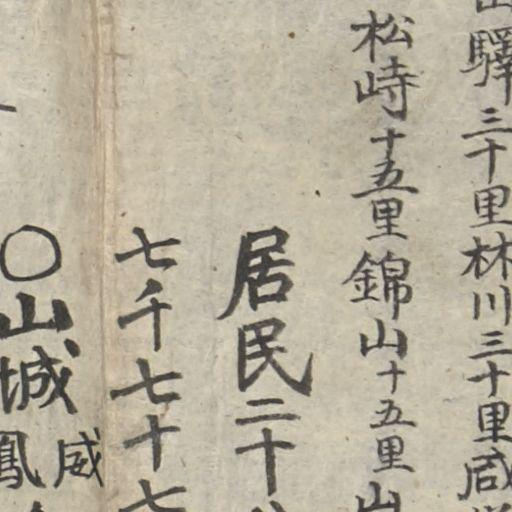 驛三十里林川三十里咸
松峙十五里錦山十五里
居民二十
七千七十七
〇山城
鳳
咸